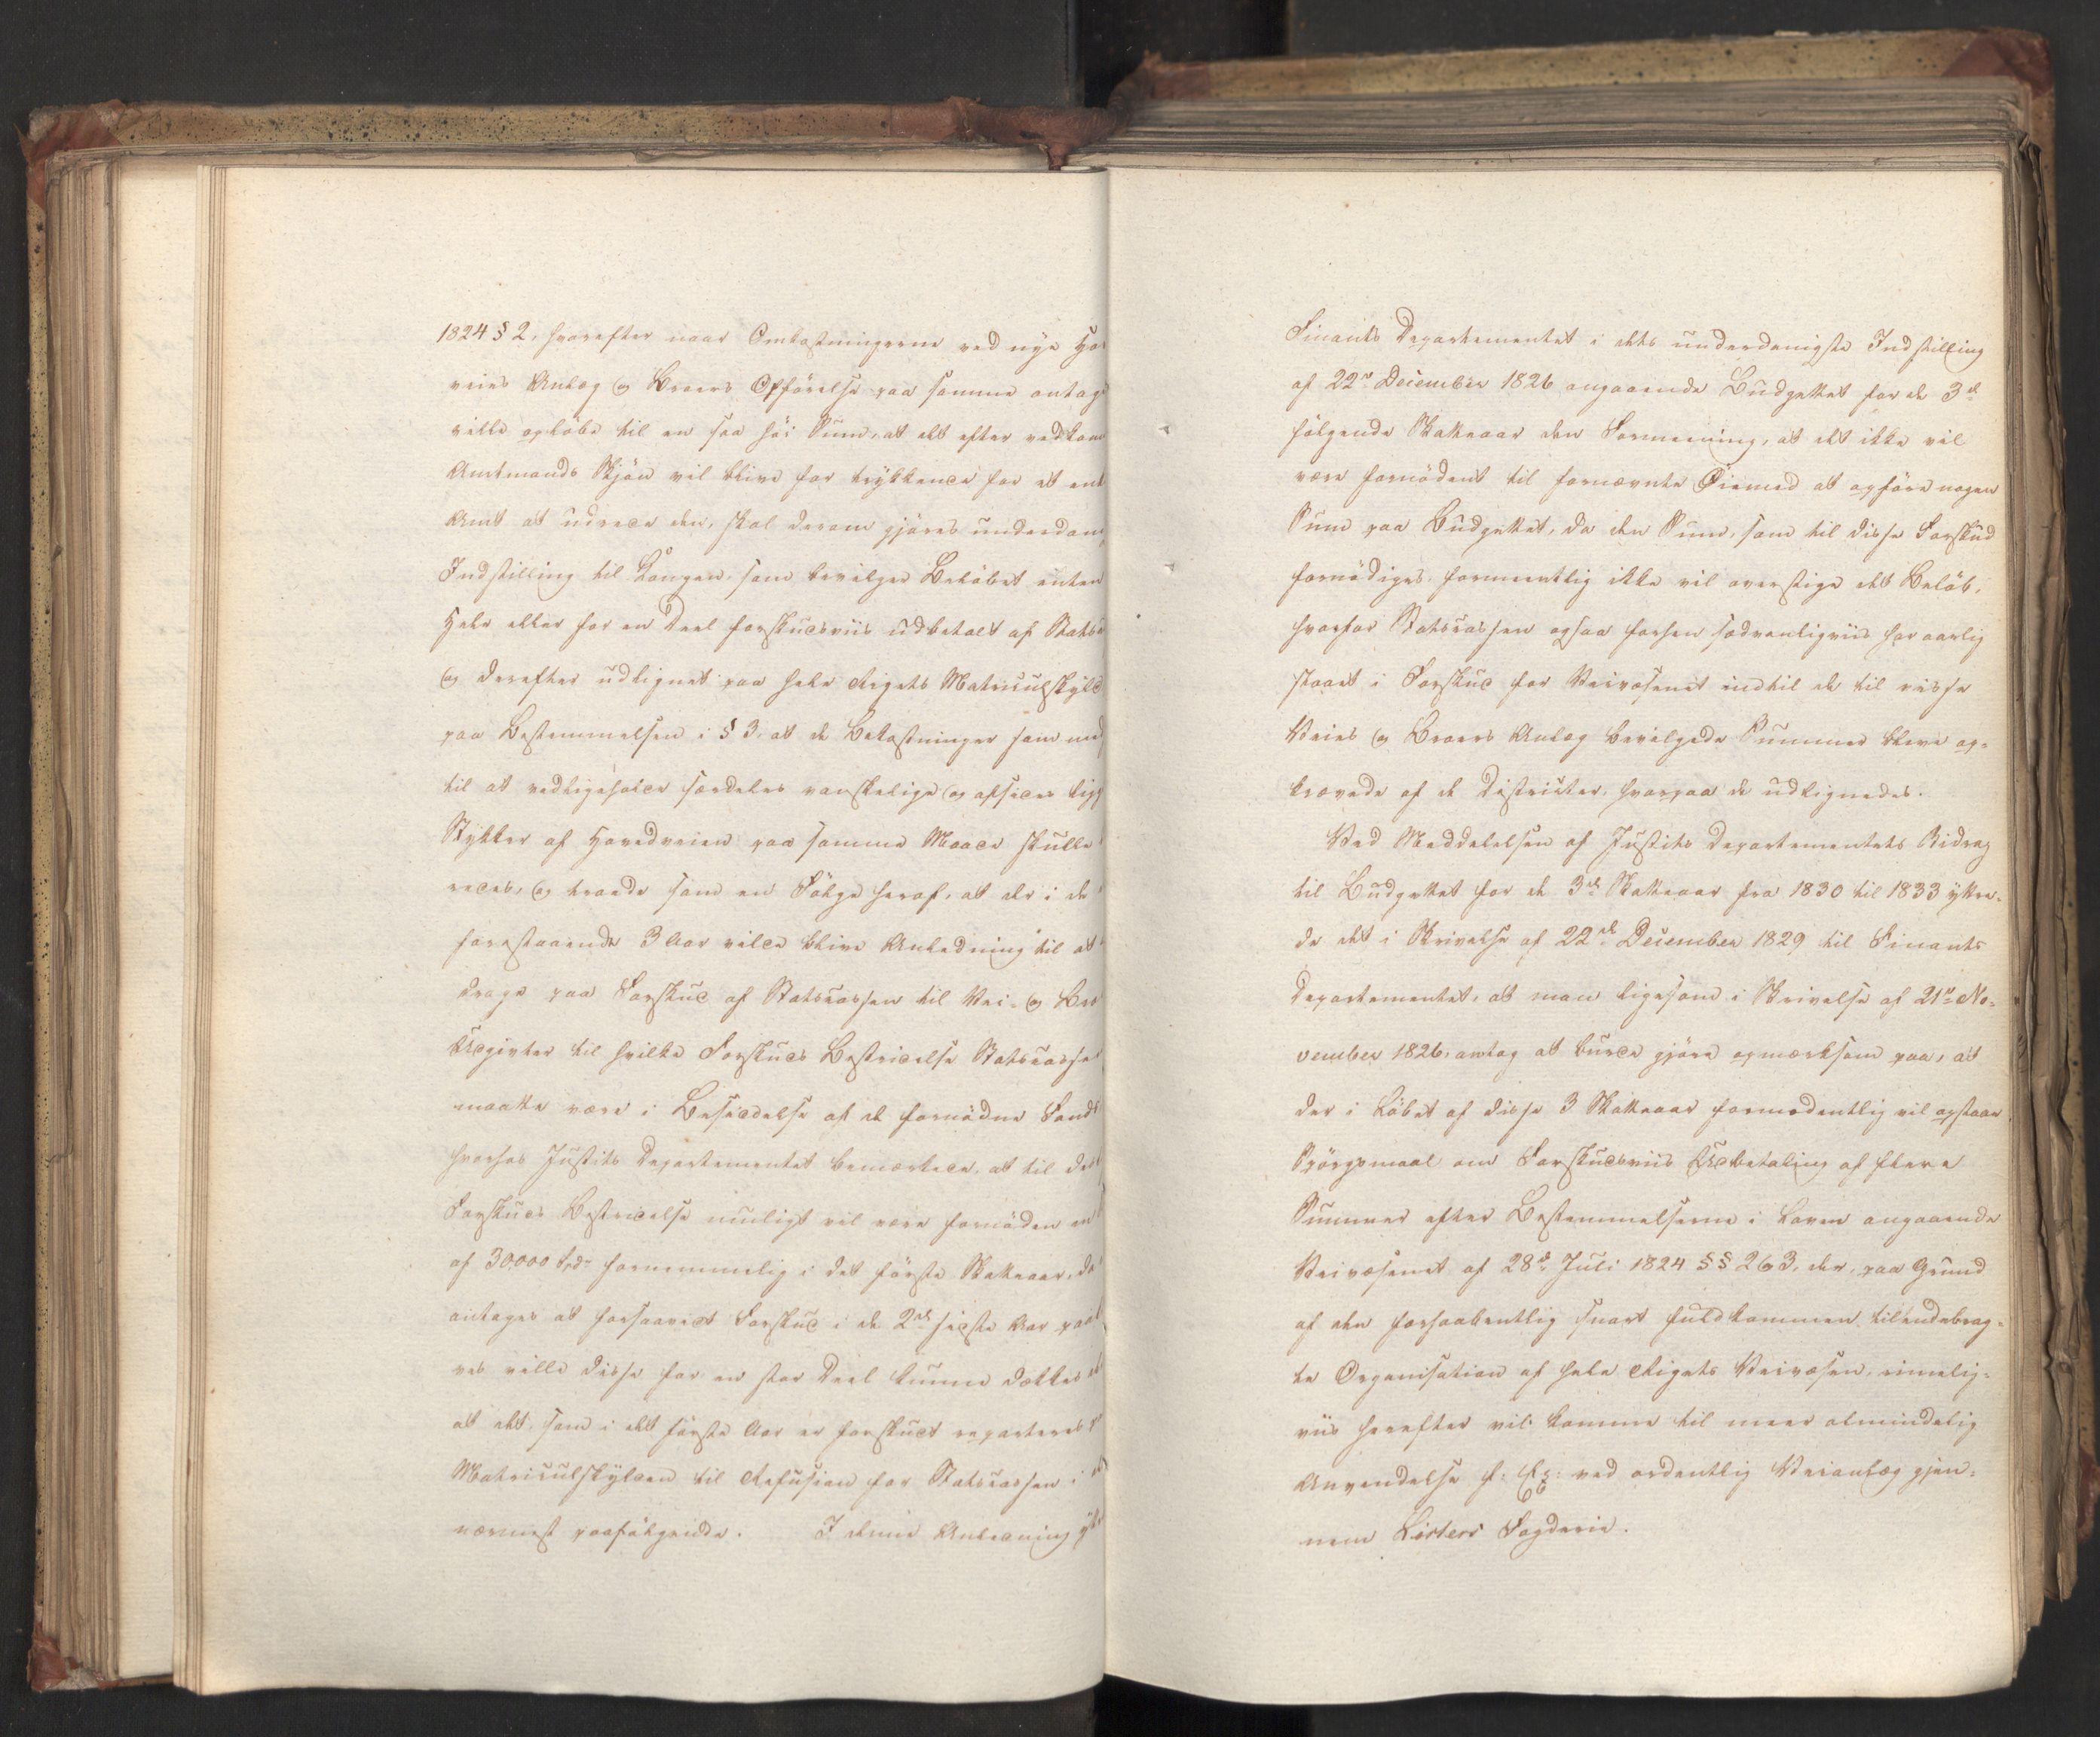 1824 § 2, hvorefter naar Omkostningerne ved nye Ho
veies Anlæg og Broers Opförelse paa samme antag
ville oplöbe til en saa höi Sum, at det efter vedkom
Amtmands Skjön vil blive for trykkende for et enk
Amt at udrede den, skal derom gjöres underdan
Indstilling til Kongen, som bevilger Belöbet enten
Hele eller for en Deel forskudsviis udbetalt af Stats
og derefter udlignet paa hele Rigets Matriculskyld
paa Bestemmelsen i § 3, at de Bekostninger som med
til at vedligeholde særdeles vanskelige og afsides ligg
Stykker af Hovedveien paa samme Maade skulle
redes, og troede som en Fölge heraf, at der i de
forestaaende 3 Aar vilde blive Anledning til at
drage paa Forskud af Statscassen til Vei- og Bro
Udgivter til hvilke Forskuds Bestridelse Statscasse
maatte være i Besiddelse af de fornödne Fond
hvorhos Justits Departementet bemærkede, at til de
Forskuds Bestridelse muligt vil være fornöden en
af 30,000 Spd. fornemmelig i det förste Skatteaar, da
antages at forsaavidt Forskud i de 2de sidste Aar paa
ves ville disse for en stor Deel kunne dækkes
at det, som i det förste Aar er forskudt reparteres
Matriculskylden til Refusion for Statscassen i
nærmest paafölgende. I denne Anledning ytt
Finants Departementet i dets underdanigste Indstilling
af 22de December 1826 angaaende Budgettet for de 3de
fölgende Skatteaar den Formening, at det ikke vil
være fornödent til fornævnte Öiemed at opföre nogen
Sum paa Budgettet, da den Sum, som til disse Forskud
fornödiges, formeentlig ikke vil overstige det Belöb,
hvorfor Statscassen ogsaa forhen sædvanligviis har aarlig
staaet i Forskud for Veivæsenet indtil de til visse
Veies og Broers Anlæg bevilgede Summer bleve op-
krævede af de Districter, hvorpaa de udlignedes.
Ved Meddelelsen af Justits Departementets Bidrag
til Budgettet for de 3de Skatteaar fra 1830 til 1833 yttre-
de det i Skrivelse af 22de December 1829 til Finants
Departementet, at man ligesom i Skrivelse af 21de No-
vember 1826, antog at burde gjöre opmærksom paa, at
der i Löbet af disse 3 Skatteaar formodentlig vil opstaae
Spörgsmaal om Forskudsviis Udbetaling af flere
Summer efter Bestemmelserne i Loven angaaende
Veivæsenet af 28de Juli 1824 §§ 2 og 3, der, paa Grund
af den forhaabentlig snart fuldkommen tilendebrag-
te Organisation af hele Rigets Veivæsen, rimelig-
viis herefter vil komme til meer almindelig
Anvendelse f: Ex: ved ordentlig Veianlæg gjen-
nem Listers Fogderie.